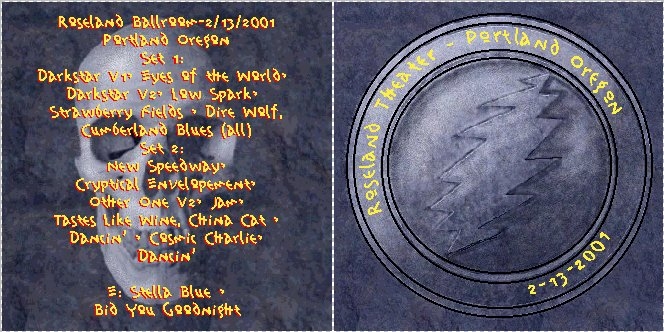 Roseland Ballroom-2/13/2001
Portland Oregon
Set 1:
Darkstar V1> Eyes of the World>
Darkstar V2> Low Spark>
Strawberry Fields > Dire Wolf,
Cumberland Blues (all)
Set 2:
New Speedway>
Cryptical Envelopement>
Other One V2> Jam>
Tastes Like Wine, China Cat >
Dancin' > Cosmic Charlie>
Dancin'
E: Stella Blue >
Bid You Goodnight
Roseland Theater - Portland Oregon
2-13-2001